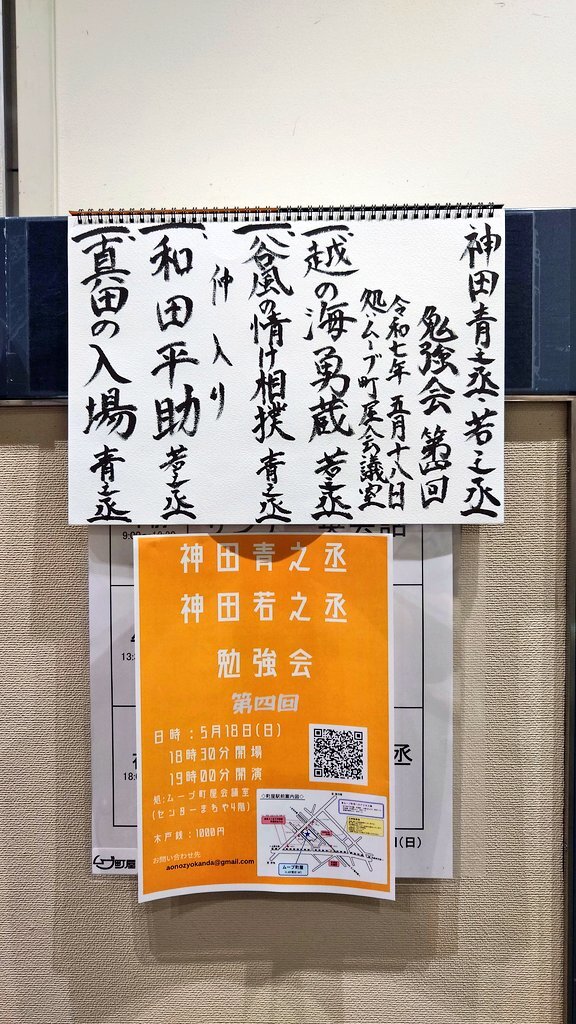 神田青之丞・若之丞
勉強会 第四回
令和七年 五月十八日
処・ムーブ町屋会議室
一、越の海勇蔵 若之丞
一、谷風の情け相撲 青之丞
仲入り
一、和田平助 若之丞
一、真田の入場 青之丞
神田青之丞
神田若之丞
勉強会
第四回
日時:5月18日(日)
18時30分開場
19時00分開演
処:ムーブ町屋会議室
(センターまちや4階)
木戸銭:1000円
お問い合わせ先
aonozyokanda@gmail.com
◇町屋駅前案内図◇
ムーブ町屋
9:00
13:
18:
丞
(日)
町屋